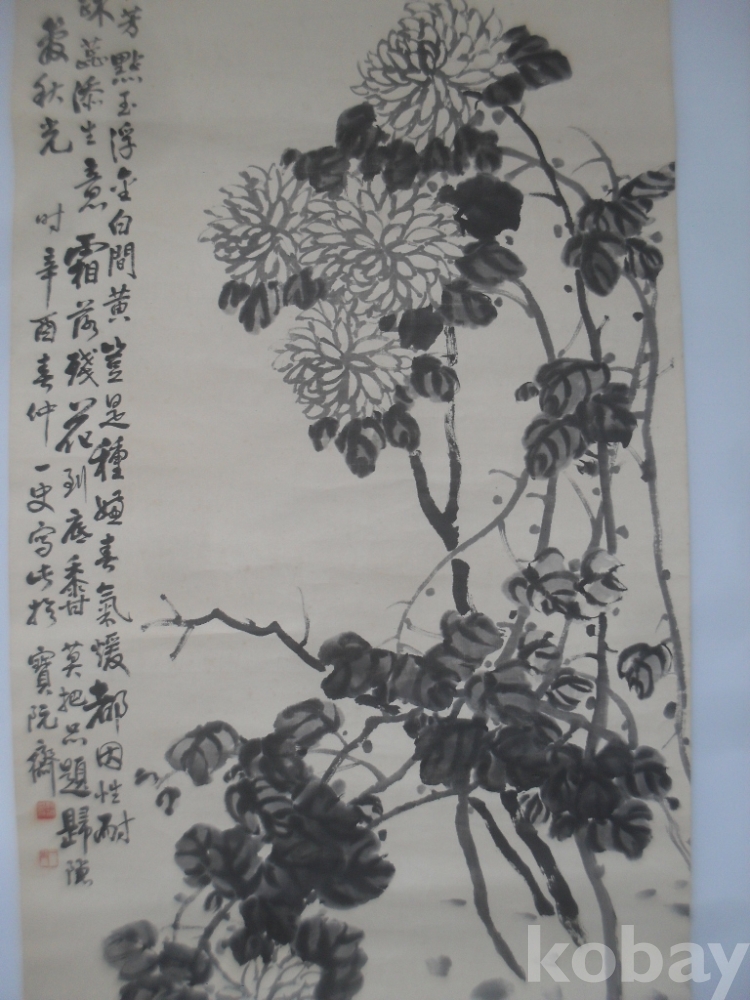 芳點玉浮金白間黃豈是種嫌春氣暖都因性耐
蕊添生意霜落殘花到底香莫把品題歸隱
秋光 時辛酉春仲一史寫此於寶阮齋
kobay